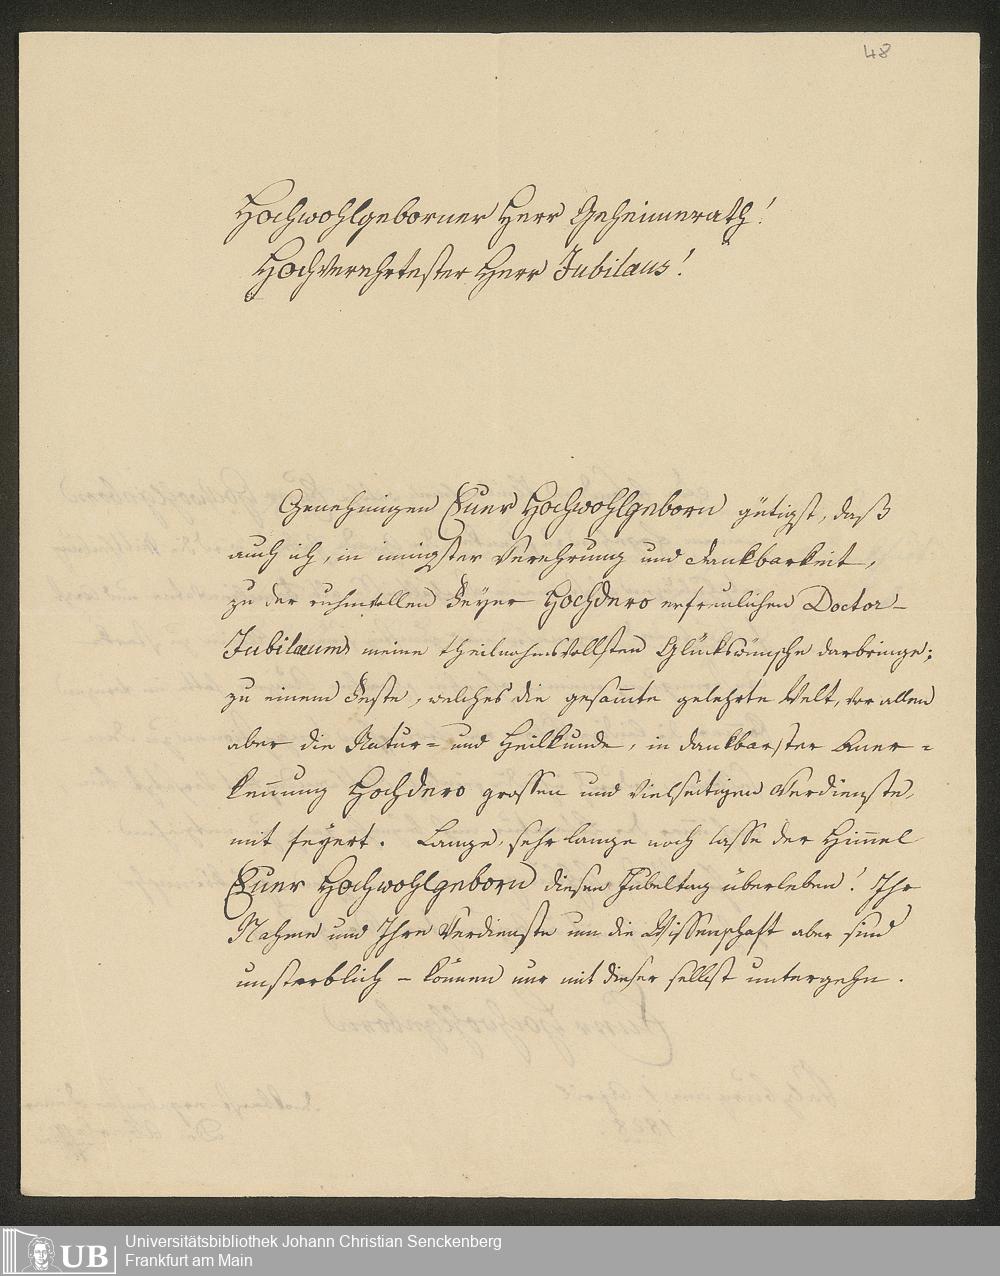 48
Hochwohlgeborner Herr Geheimerath!
Hochverehrtester Herr Jubilaus!
Genehmigen Euer Hochwohlgeborn gütigst, daß
auch ich, in innigster Verehrung und Dankbarkeit,
zu der ruhmvollen Feyer Hochdero erfreulichen Doctor-
Jubilaeums meine theilnahmsvollsten Glückwünsche darbringe;
zu einem Feste, welches die gesam̅te gelehrte Welt, vor allen
aber die Natur- und Heilkunde, in dankbarster Aner-
ken̅ung Hochdero grossen und vielseitigen Verdienste,
mit feyert. Lange, sehr lange noch lasse der Him̅el
Euer Hochwohlgeborn diesen Jubeltag überleben! Ihr
Nahme und Ihre Verdienste um die Wissenschaft aber sind
unsterblich – können nur mit dieser selbst untergehn.
UB
Universitätsbibliothek Johann Christian Senckenberg
Frankfurt am Main